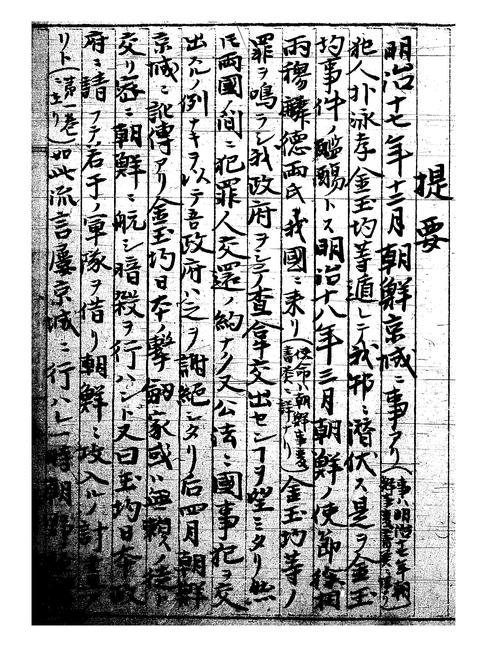 提要
明治十七年十二月朝鮮京城ニ事アリ(事ハ明治十七年朝鮮事変書類ニ詳ナリ)
犯人朴泳孝金玉均等遁レテ我邦ニ潜伏ス是ヲ金玉
均事件ノ濫觴トス明治十八年三月朝鮮ノ使節徐相
雨穆麟徳両氏我國ニ来リ(使命ハ朝鮮事変書類ニ詳ナリ)金玉均等ノ
罪ヲ鳴ラシ我政府ヲシテ査拿交出セシコヲ望ミタリ然
𪜈両國ノ間ニ犯罪人交還ノ約ナク又公法ニ國事犯ヲ交
出スルノ例ナキヲ以テ吾政府ハ之ヲ謝絶シタリ后四月朝鮮
京城ニ訛傳アリ金玉均日本ノ撃劔家或ハ無頼ノ徒ト
交リ密ニ朝鮮ニ航シ暗殺ヲ行ハント又曰玉均日本政
府ニ請フテ若干ノ軍隊ヲ借リ朝鮮ニ攻入ルノ計
リト(第一巻ニ在リ)如此流言屢京城ニ行ハレ一時朝野